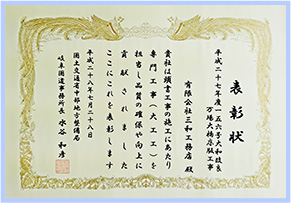 表彰状
平成二十七年度一五六号大和改良
万場大橋応旅工事
有限会社三和工務店 殿
貴社は頭書工事の施工にあたり
専門工事(大工工)を
担当し品質の確保や向上に
貢献されました
ここにこれを表彰します
平成二十八年七月二十八日
国土交通省中部地方整備局
岐阜国道事務所長 水谷 和彦